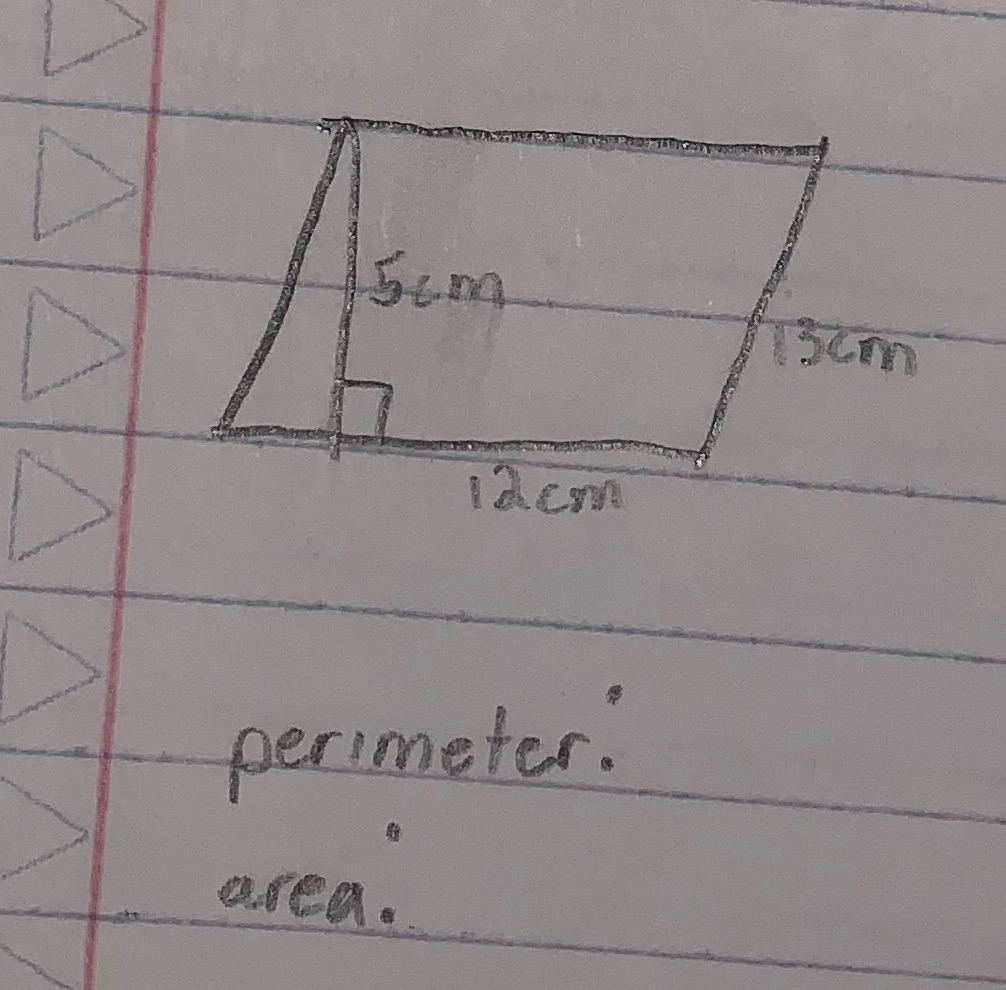 5cm
13cm
12cm
perimeter:
area: